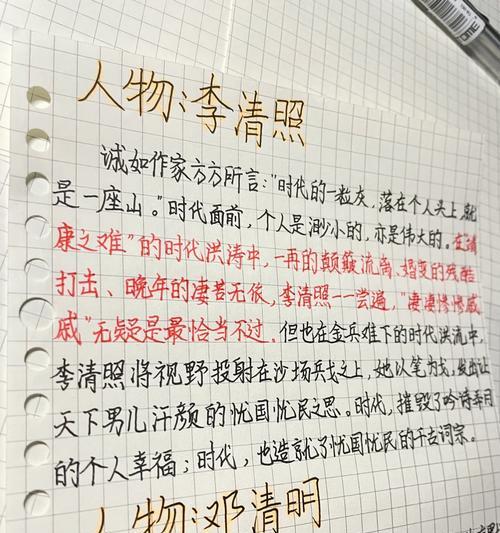 人物：李清照
诚如作家方方所言："时代的一粒灰，落在个人头上，就
是一座山。"时代面前，个人是渺小的，亦是伟大的。在"靖
康之难"的时代洪涛中，一再的颠簸流离、婚变的残酷
打击、晚年的凄苦无依，李清照一一尝遍，"凄凄惨惨戚
戚"无疑是最恰当不过。但也在金兵难下的时代洪流中，
李清照将视野投射在沙场兵戈之上，她以笔为戈，发出让
天下男儿汗颜的忧国忧民之思。时代，摧毁了吟诗弄月
的个人幸福；时代，也造就了忧国忧民的千古词宗。
人物：邓清明